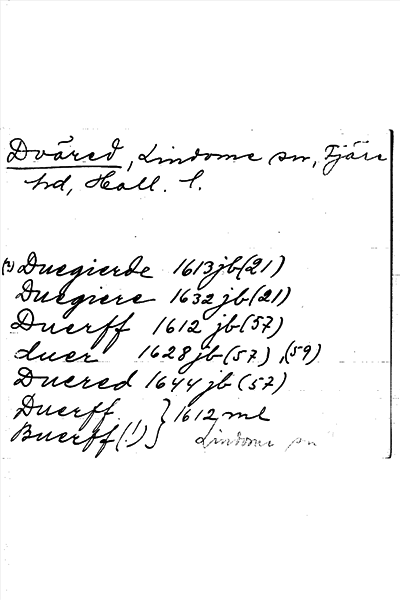 Dväred, Lindome sn, Fjäre
hd, Hall. l.
(?) Duegierde 1613 jb (21)
Duegiere 1632 jb (21)
Duerff 1612 jb (57)
duer 1628 jb (57), (59)
Duered 1644 jb (57)
Duerff } 1612 ml
Buerff (!) } Lindome sn